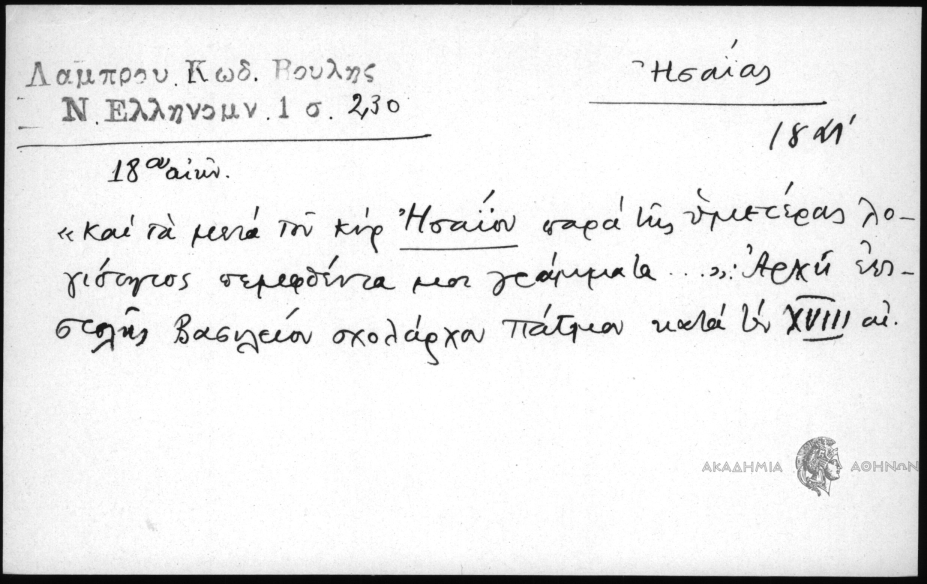 Λαμπρου Κωδ. Βουλης
Ν. Ελληνομν. 1 σ. 230
Ἡσαΐας
18 αι'
18ου αἰών.
«Καὶ τὰ μετὰ τοῦ κὺρ Ἡσαΐου παρὰ τῆς ὑμετέρας λο-
γιότητος πεμφθέντα μοι γράμματα ...»: Ἀρχὴ ἐπι-
στολῆς Βασιλείου σχολάρχου Πάτμου κατὰ τὸν XVIII αἰ.
ΑΚΑΔΗΜΙΑ ΑΘΗΝΩΝ